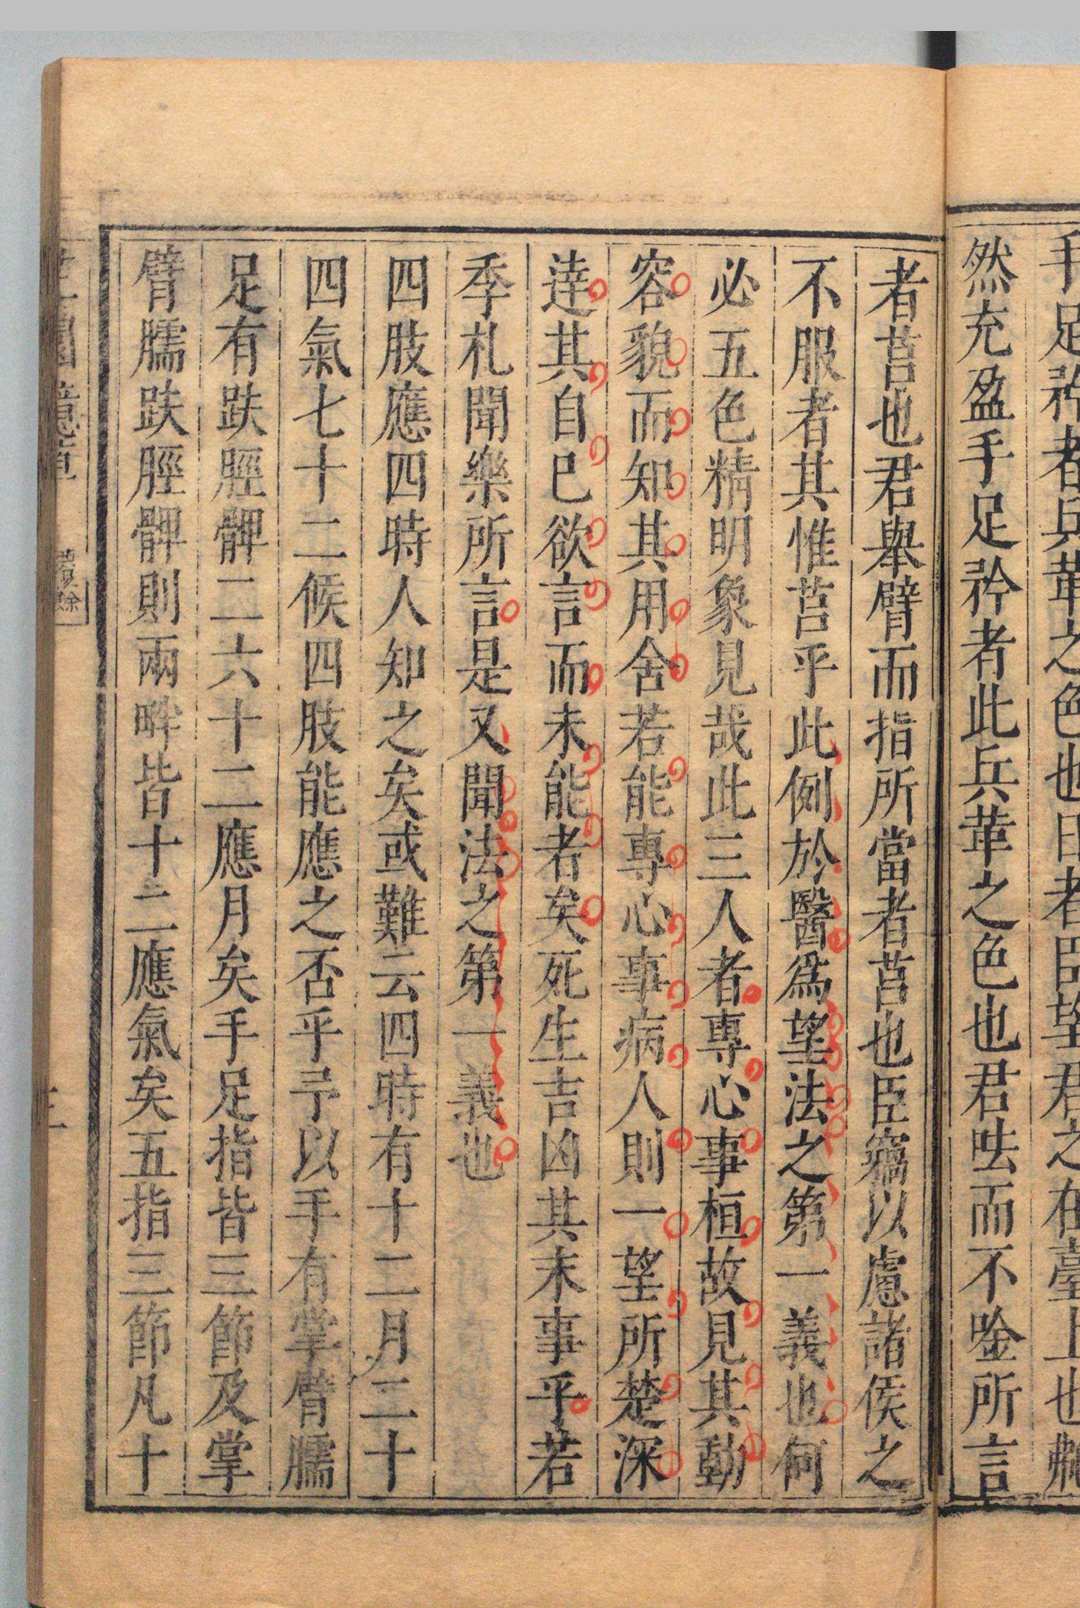 手足矜者兵革之色也日者臣望君之在臺上也艴
然充盈手足矜者此兵革之色也君呿而不唫所言
者莒也君舉臂而指所當者莒也臣竊以慮諸侯之
不服者其惟莒乎此例於醫爲望法之第一義也何
必五色精明象見哉此三人者專心事桓故見其動
容貌而知其用舍若能專心事病人則一望所楚深
達其自已欲言而未能者矣死生吉凶其末事乎若
季札聞樂所言是又聞法之第一義也
四肢應四時人知之矣或難云四時有十二月二十
四氣七十二候四肢能應之否乎予以手有掌臂臑
足有趺脛髀二六十二應月矣手足指皆三節及掌
臂臑趺脛髀則兩畔皆十二應氣矣五指三節凡十